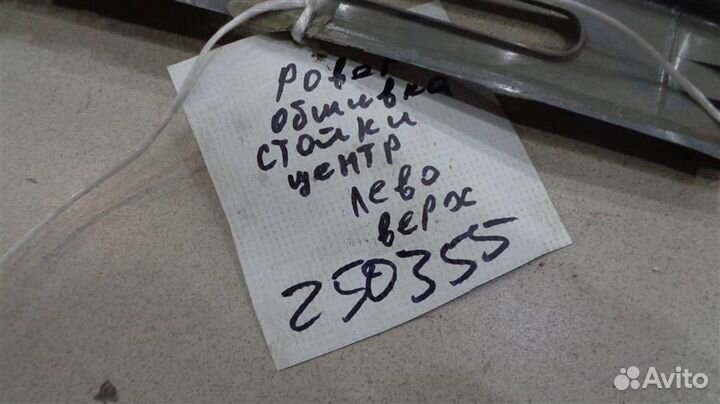 ровер
обшивка
стойки
центр
лево
верх
250355
Avito